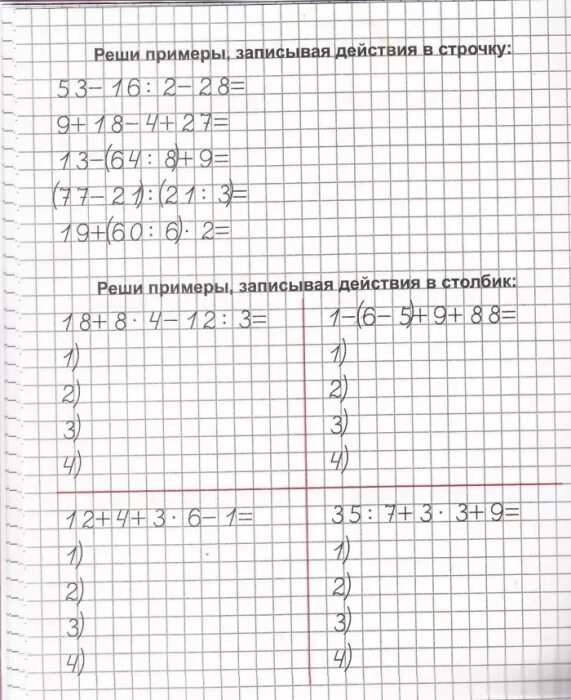 Реши примеры, записывая действия в строчку:
53-16:2-28=
9+18-4+27=
13-(64:8)+9=
(77-21):(21:3)=
19+(60:6)·2=
Реши примеры, записывая действия в столбик:
18+8·4-12:3=
1)
2)
3)
4)
1-(6-5)+9+88=
1)
2)
3)
4)
12+4+3·6-1=
1)
2)
3)
4)
35:7+3·3+9=
1)
2)
3)
4)